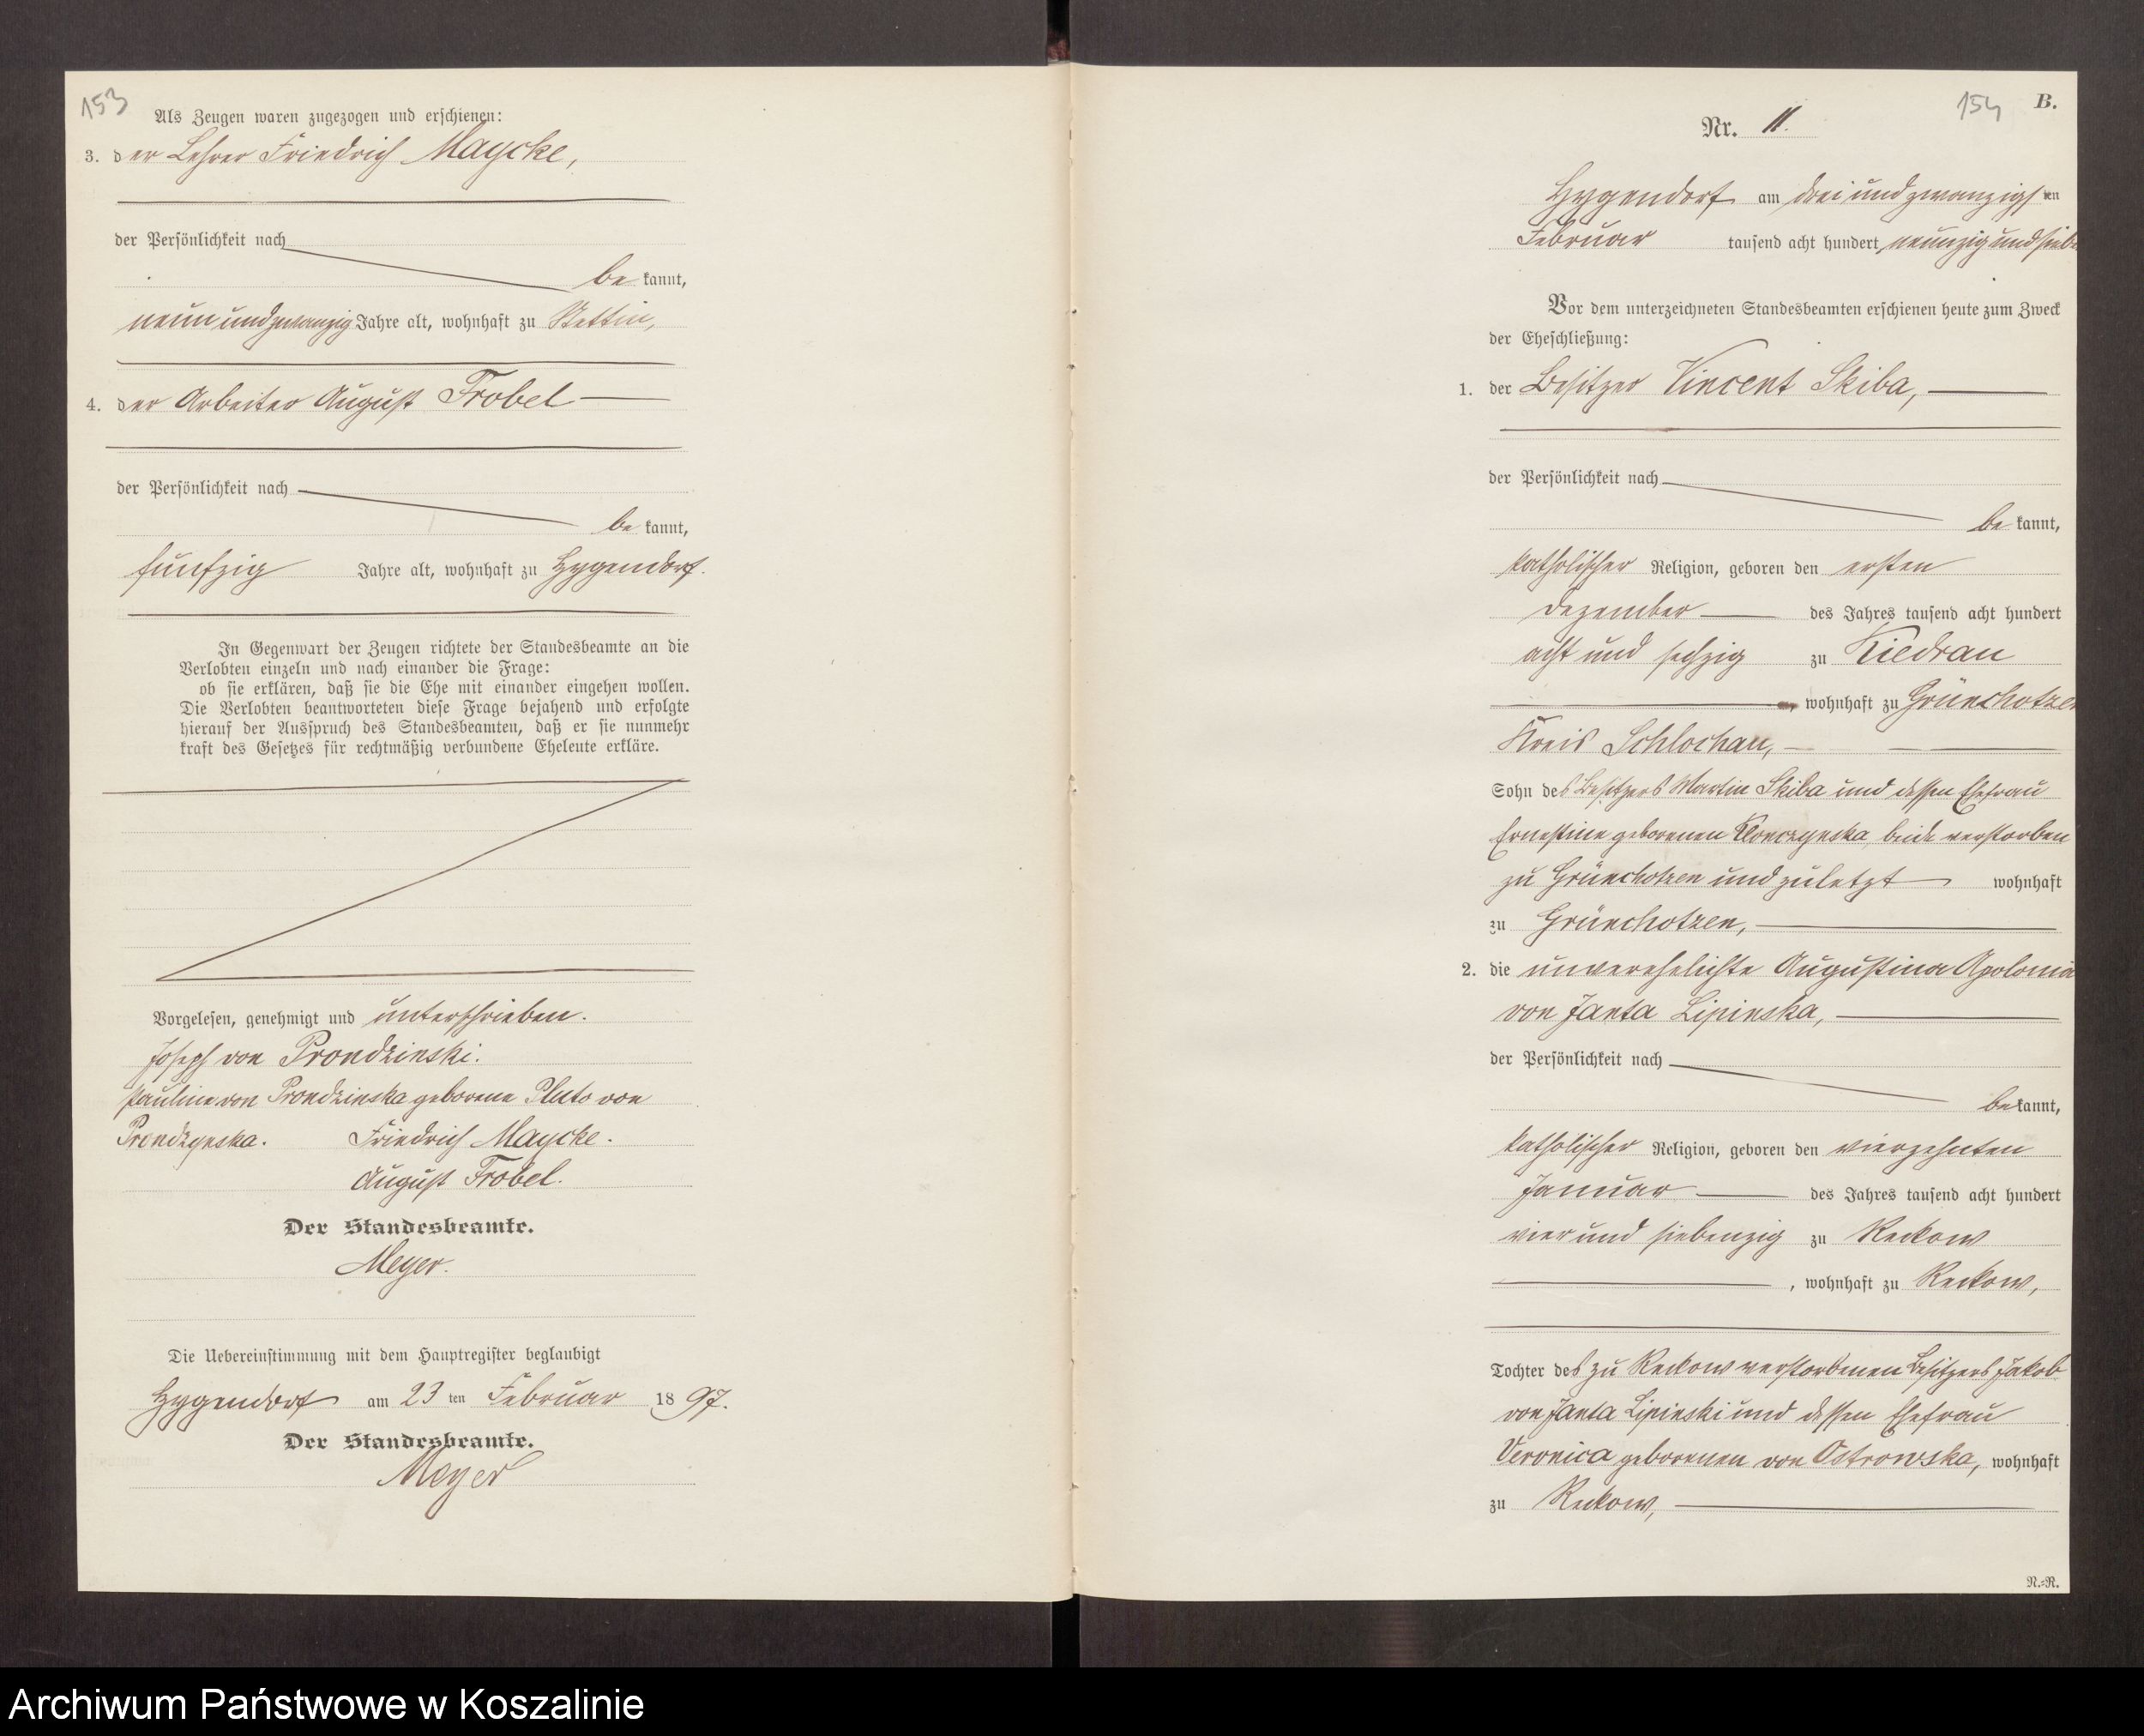 153
Als Zeugen waren zugezogen und erschienen:
3. der Lehrer Friedrich Maycke,
der Persönlichkeit nach
be kannt,
neun und zwanzig Jahre alt, wohnhaft zu Stettin,
4. der Arbeiter August Frobel
der Persönlichkeit nach
be kannt,
fünfzig Jahre alt, wohnhaft zu Hygendorf.
In Gegenwart der Zeugen richtete der Standesbeamte an die
Verlobten einzeln und nach einander die Frage:
ob sie erklären, daß sie die Ehe mit einander eingehen wollen.
Die Verlobten beantworteten diese Frage bejahend und erfolgte
hierauf der Ausspruch des Standesbeamten, daß er sie nunmehr
kraft des Gesetzes für rechtmäßig verbundene Eheleute erkläre.
Vorgelesen, genehmigt und unterschrieben.
Joseph von Prondzinski.
Pauline von Prondzinska geborene Pluto von
Prondzynska. Friedrich Maycke.
August Frobel.
Der Standesbeamte.
Meyer.
Die Uebereinstimmung mit dem Hauptregister beglaubigt
Hygendorf am 23 ten Februar 18 97.
Der Standesbeamte.
Meyer
154 B.
Nr. 11.
Hygendorf am drei und zwanzigsten
Februar tausend acht hundert neunzig und sieben
Vor dem unterzeichneten Standesbeamten erschienen heute zum Zweck
der Eheschließung:
1. der Besitzer Vincent Skiba,
der Persönlichkeit nach
be kannt,
katholischer Religion, geboren den ersten
Dezember des Jahres tausend acht hundert
acht und sechzig zu Kiedrau
, wohnhaft zu Grünchotzen
Kreis Schlochau,
Sohn des Besitzers Martin Skiba und dessen Ehefrau
Ernestine geborenen Klonczynska, beide verstorben
zu Grünchotzen und zuletzt wohnhaft
zu Grünchotzen,
2. die unverehelichte Augustina Apolonia
von Janta Lipinska,
der Persönlichkeit nach
be kannt,
katholischer Religion, geboren den vierzehnten
Januar des Jahres tausend acht hundert
vier und siebenzig zu Reckow
, wohnhaft zu Reckow,
Tochter des zu Reckow verstorbenen Besitzers Jakob
von Janta Lipinski und dessen Ehefrau
Veronica geborenen von Ostrowska, wohnhaft
zu Reckow,
N.-R.
Archiwum Państwowe w Koszalinie